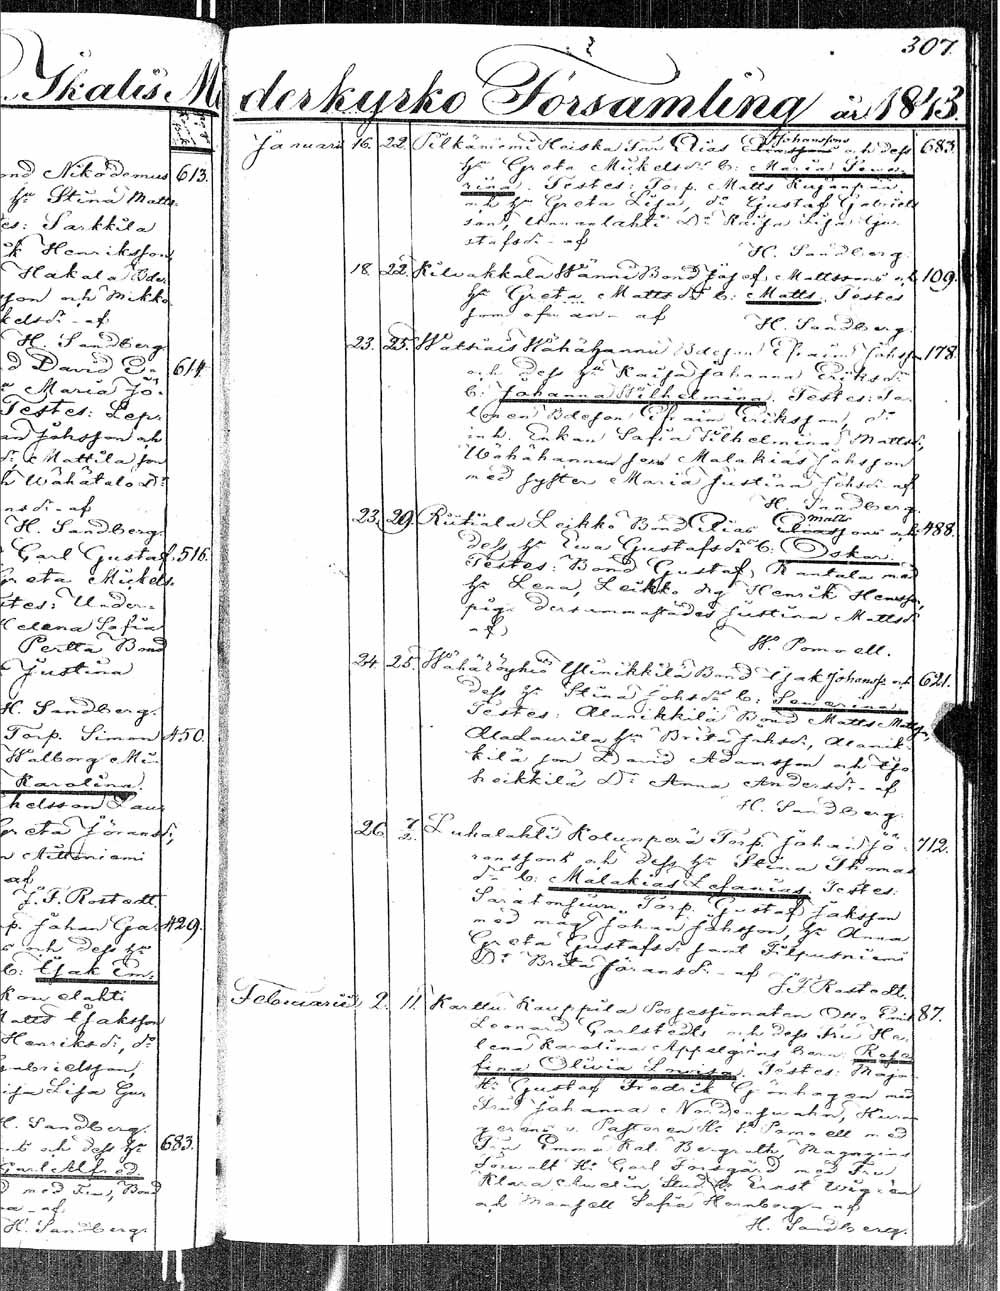 307.
Ikalis Mo
derkyrko Församling år 1843.
ond Nikodemus 613.
hr Stina Matts.
es: Sarkkila
ik Henriksson,
Hakala Bde
son och Mikko
kelsdr - af
H. Sandberg.
d David E 614
Maria Jö
Testes: Lep.
an Johsson och
dr Mattila son
h Wähätalo Dr
nsdr - af
H. Sandberg.
Carl Gustaf 516.
Greta Mickels
stes: Under
Helena Sofia
Pertta Bond
Justina
H. Sandberg.
Torp. Simon 450.
Walborg Mi
Karolina.
helsson Lau
Greta Göransdr,
n Aittoniemi
af
J. F. Rostedt.
rp. Johan Ga 429.
och dess hr
b: Isak Em.
kon elahti
Matts Isaksson
Henriksdr, dr
Gabrielsson,
Lisa Gu
H. Sandberg.
och dess hr 683.
Carl Alfred.
d med Fru, Bond
na - af
H. Sandberg.
Januarii 16. 22. Pilkäniemi Heiska Son Elias Johanssons och dess 683
hr Greta Mickelsdr b: Maria Seve
rina. Testes: Torp. Matts Kujanpää
och hr Greta Lisa, dr Gustaf Gabriels
son, Dr Kaisa Lisa Gu
stafsdr - af
H. Sandberg.
18. 22. Kilvakkala Wänni Bond Josef Mattssons och 109.
hr Greta Mattsdr b: Matts. Testes
som ofvan - af
H. Sandberg.
23. 25. Watsiais Wähähannu Bdeson Efraim Johsson 178.
och dess hr Kaisa Johanna Eriksdr
b: Johanna Wilhelmina. Testes: Ta
lonen Bdeson Efraim Eriksson, dr
inh. Enkan Sofia Wilhelmina Mattsdr,
Wähähannu son Malakias Johsson
med syster Maria Justina Johsdr - af
H. Sandberg.
23. 29. Riitiala Leikko Bond Elias Matts sons och 488.
dess hr Ewa Gustafsdr b: Oskar.
Testes: Bond Gustaf Rantala med
hr Lena, Leikko drg Henrik Henrsson,
pig. dersammastädes Justina Mattsdr
- af
W. Pomoell.
24. 25. Wähäröyhiö Ylinikkilä Bond Isak Johanss och 621.
dess hr Stina Johsdr b: Severina.
Testes: Alanikkilä Bond Matts Mattsson,
Alalaurila hr Brita Johsdr, Alanik
kilä son David Adamsson och Iso
heikkilä Dr Anna Andersdr - af
H. Sandberg.
26. 7/2. Luhalahti Kolunperä Torp. Johan Jö 712.
ranssons och dess hr Stina Thomas
dr b: Malakias Lefanias. Testes:
Torp. Gustaf Jaksson
med måg Johan Johsson, hr Anna
Greta Gustafsdr samt Filpusniemi
Dr Brita Göransdr - af
J. F. Rostedt.
Februarii 2. 11. Karttu Kauppila Possessionaten Otto Emil 87.
Leonard Carlstedts och dess Fru He
lena Karolina Appelgrens barn: Rosa
fina Olivia Lovisa. Testes: Major
Hr Gustaf Fredrik Gönhagen med
Fru Johanna Nordenswahn, Kuran
gerenz v. Pastoren Hr W. Pomoell med
Fru Emma Kat. Bergroth, Magazins
Förvalt. Hr Carl Forsgård med Fru
Klara Amelin, Stud. Hr Ernst Wigren
och Mamsell Sofia Hornborg - af
H. Sandberg.